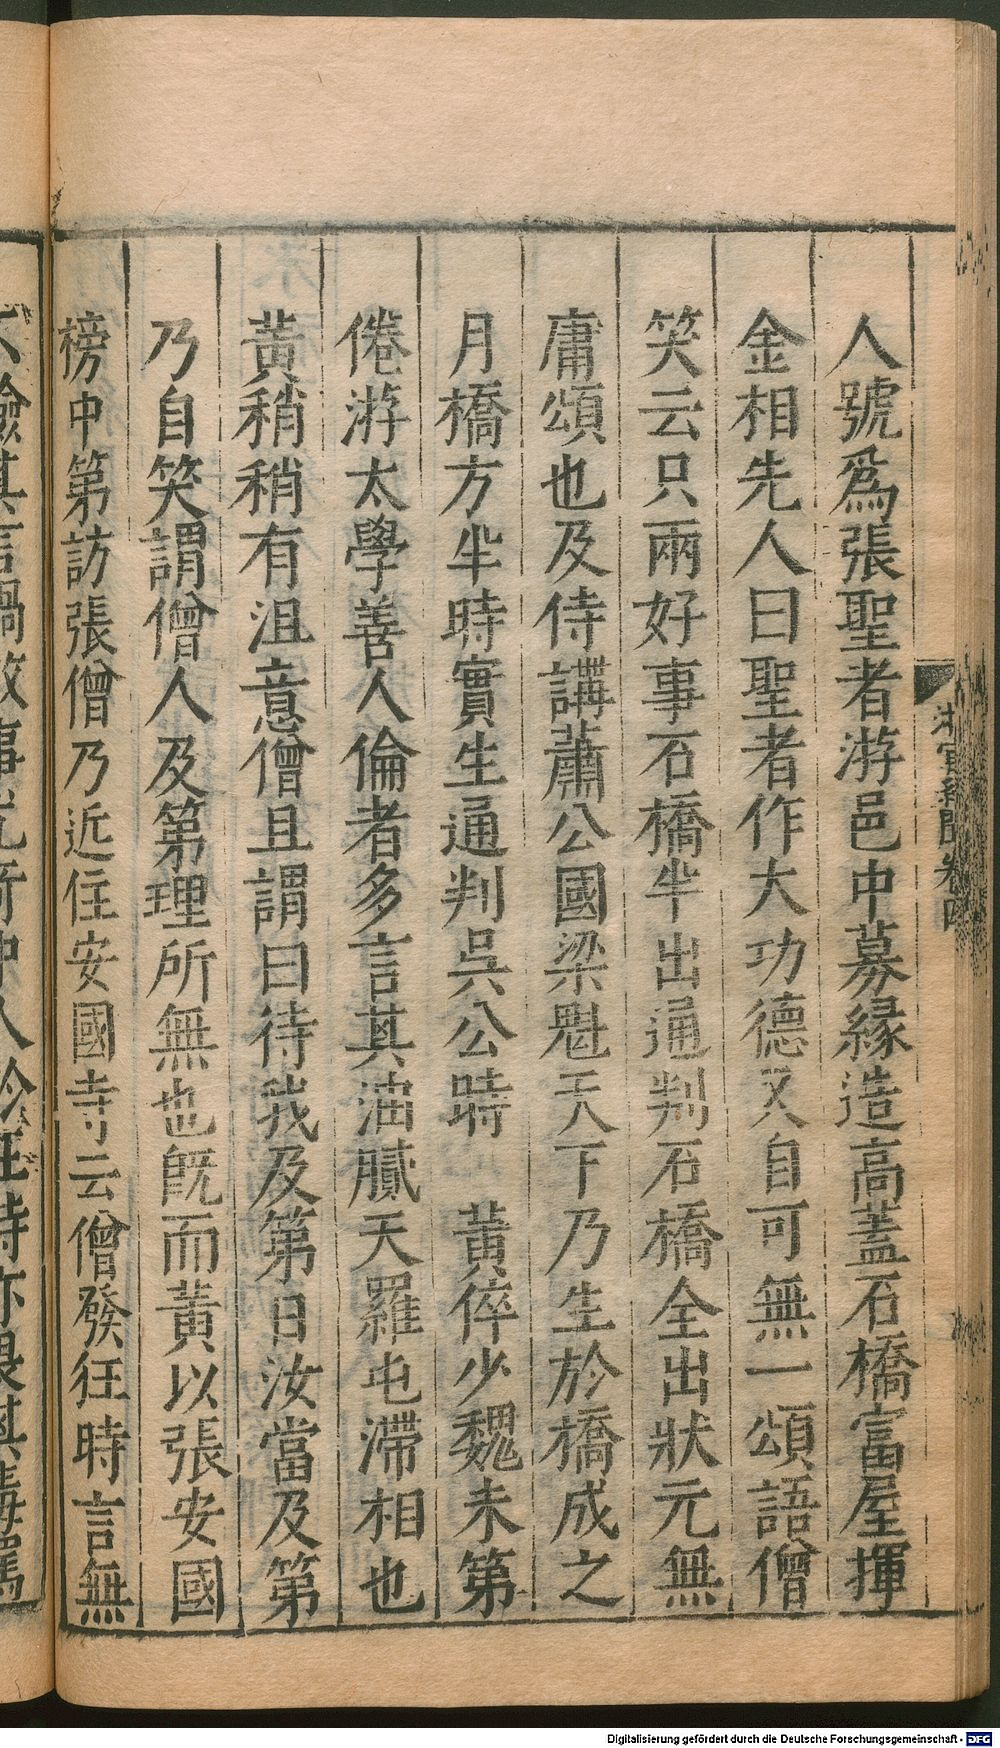 人號爲張聖者游邑中募縁造高蓋石橋富屋揮
金相先人曰聖者作大功德又自可無一頌語僧
笑云只兩好事石橋半出通判石橋全出狀元無
庸頌也及侍講蕭公國梁魁天下乃生於橋成之
月橋方半時實生通判吳公時 黃倅少魏未第
倦游太學善人倫者多言其油膩天羅屯滯相也
黃稍稍有沮意僧且謂曰待我及第日汝當及第
乃自笑謂僧人及第理所無也旣而黃以張安國
榜中第訪張僧乃近住安國寺云僧發狂時言無
卷四
Digitalisierung gefördert durch die Deutsche Forschungsgemeinschaft - DFG